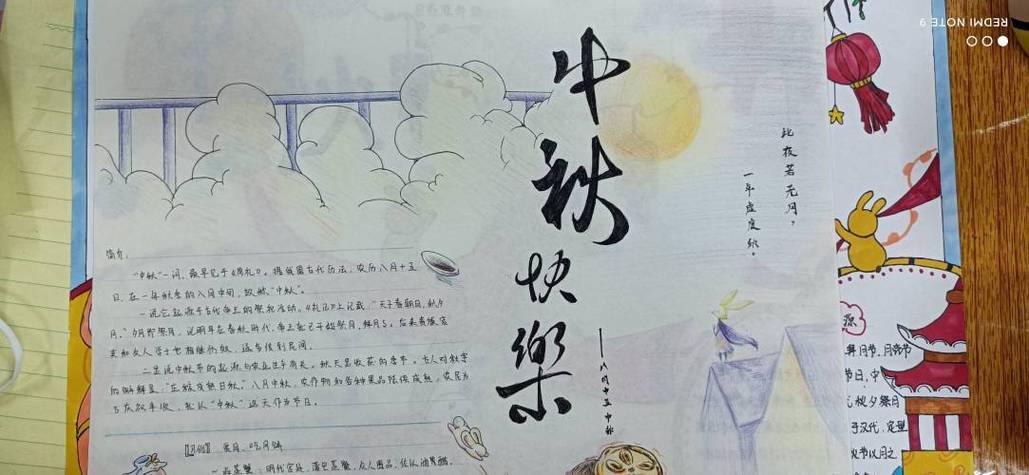 中秋快樂
——八月十五中秋
此夜若无月，
一年虚度秋。
简介：
“中秋”一词，最早见于《周礼》。据我国古代历法，农历八月十五
日，在一年秋季的八月中旬，故称“中秋”。
一说它起源于古代帝王的祭祀活动。《礼记》上记载：“天子春朝日，秋夕
月。”夕月即祭月，说明早在春秋时代，帝王就已开始祭月、拜月了。后来贵族官
吏和文人学士也相继仿效，逐步传到民间。
二是说中秋节的起源与农业生产有关。秋天是收获的季节。古人对秋字
的解释是：“庄稼成熟曰秋”。八月中秋，农作物和各种果品陆续成熟，农民为
了庆祝丰收，就以“中秋”这天作为节日。
【习俗】 赏月、吃月饼
源
拜月节、月
节日，中
秋夕祭月
于汉代，定型
秋节以月之
REDMI NOTE 9